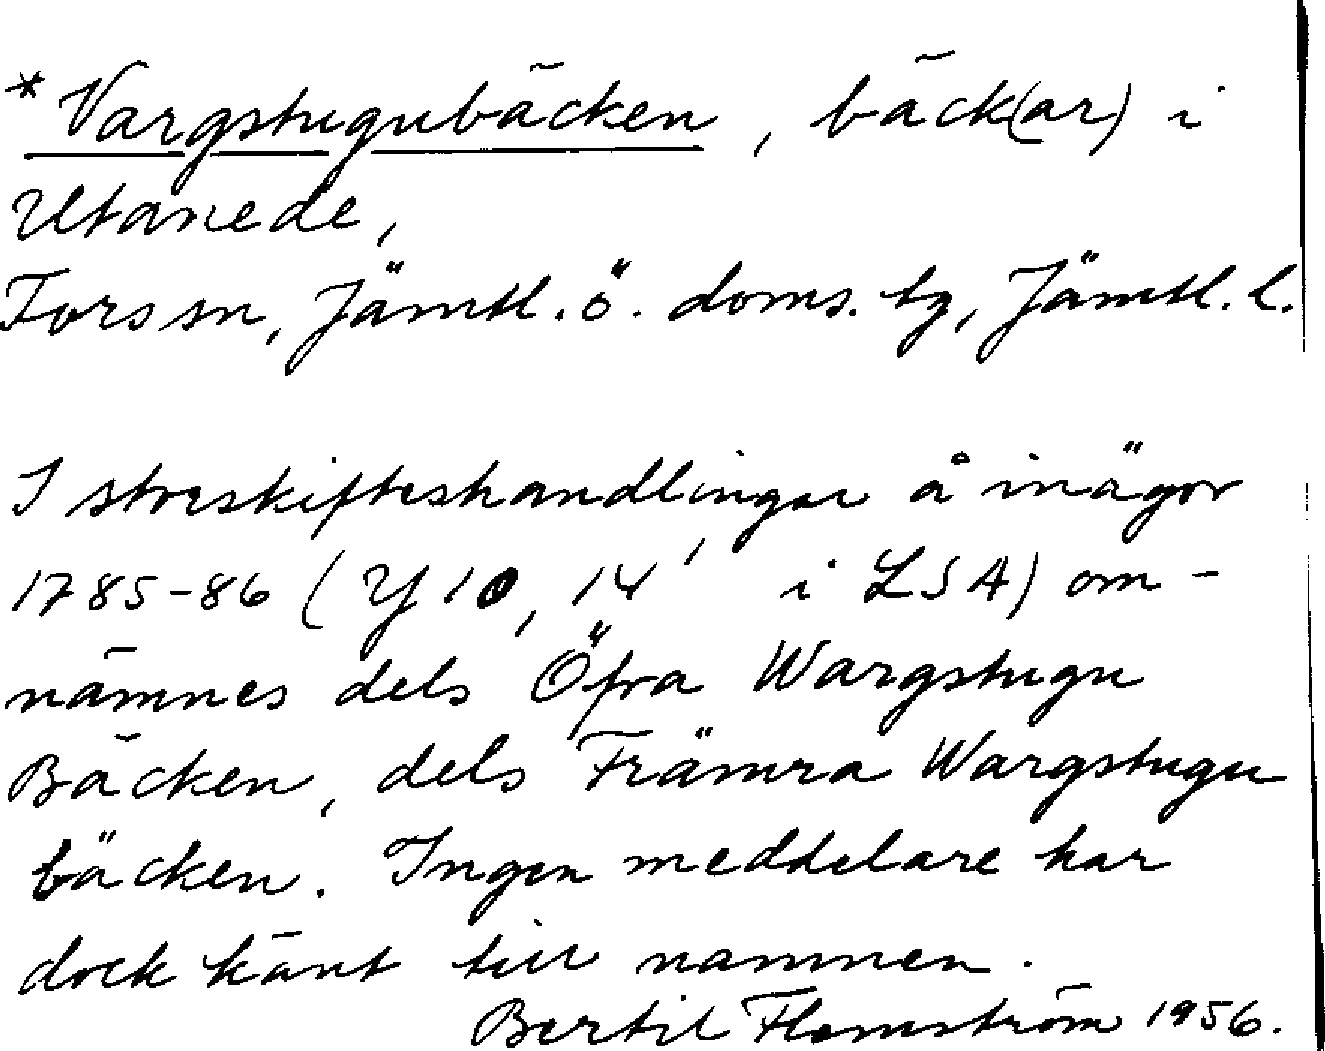 * Vargstugubäcken, bäck(ar) i
Utanede,
Fors sn, Jämtl. ö. doms. tg, Jämtl. l.
I storskifteshandlingar å inägor
1785-86 (Y 10, 14' i LSA) om-
nämnes dels Öfra Wargstugu
Bäcken, dels Främra Wargstugu
bäcken. Ingen meddelare har
dock känt till namnen.
Bertil Flemström 1956.